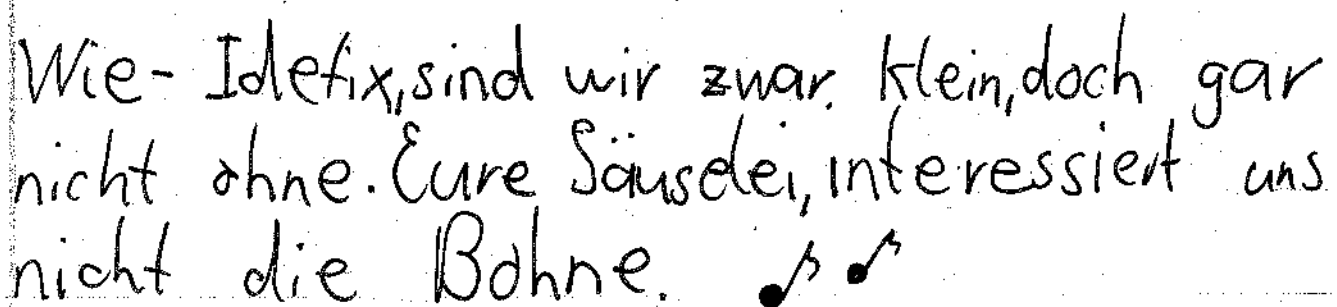 Wie- Idefix, sind wir zwar. klein, doch gar
nicht ohne. Eure Säuselei, interessiert uns
nicht die Bohne.